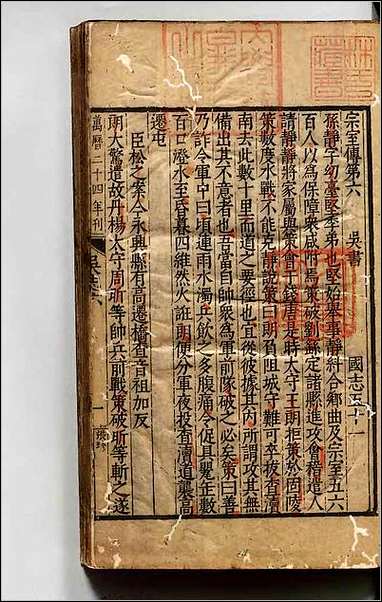 宗室傳第六 吳書 國志五十一
孫靜字幼臺堅季弟也堅始舉事靜糾合鄉曲及宗室五六
百人以為保障衆咸附焉策破劉繇定諸縣進攻會稽遣人
請靜靜將家屬與策會于錢唐是時太守王朗拒策於固陵
策數度水戰不能克靜說策曰朗負阻城守難可卒拔查瀆
南去此數十里而道之要徑也宜從彼據其內所謂攻其無
備出其不意者也吾當自帥衆為軍前隊破之必矣策曰善
乃詐令軍中曰頃連雨水濁兵飲之多腹痛令促具甖缶數
百口澄水至昏暮四維然火誑朗便分軍夜投查瀆道襲高
遷屯
臣松之案今永興縣有高遷橋查音祖加反
朗大驚遣故丹楊太守周昕等帥兵前戰策破昕等斬之遂
萬曆二十四年刊
一